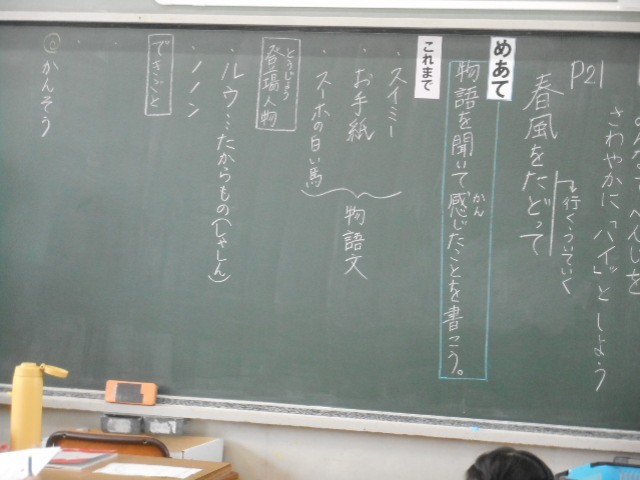 さわやかに「ハイッ」としよう
P21
春風をたどって
→行く、ついていく
めあて
物語を聞いて感じたことを書こう。
かん
これまで
・スイミー
・お手紙
・スーホの白い馬
物語文
登場人物
とうじょう
・ルウ:たからもの(しゃしん)
・ノノン
できごと
・
・
◎かんそう